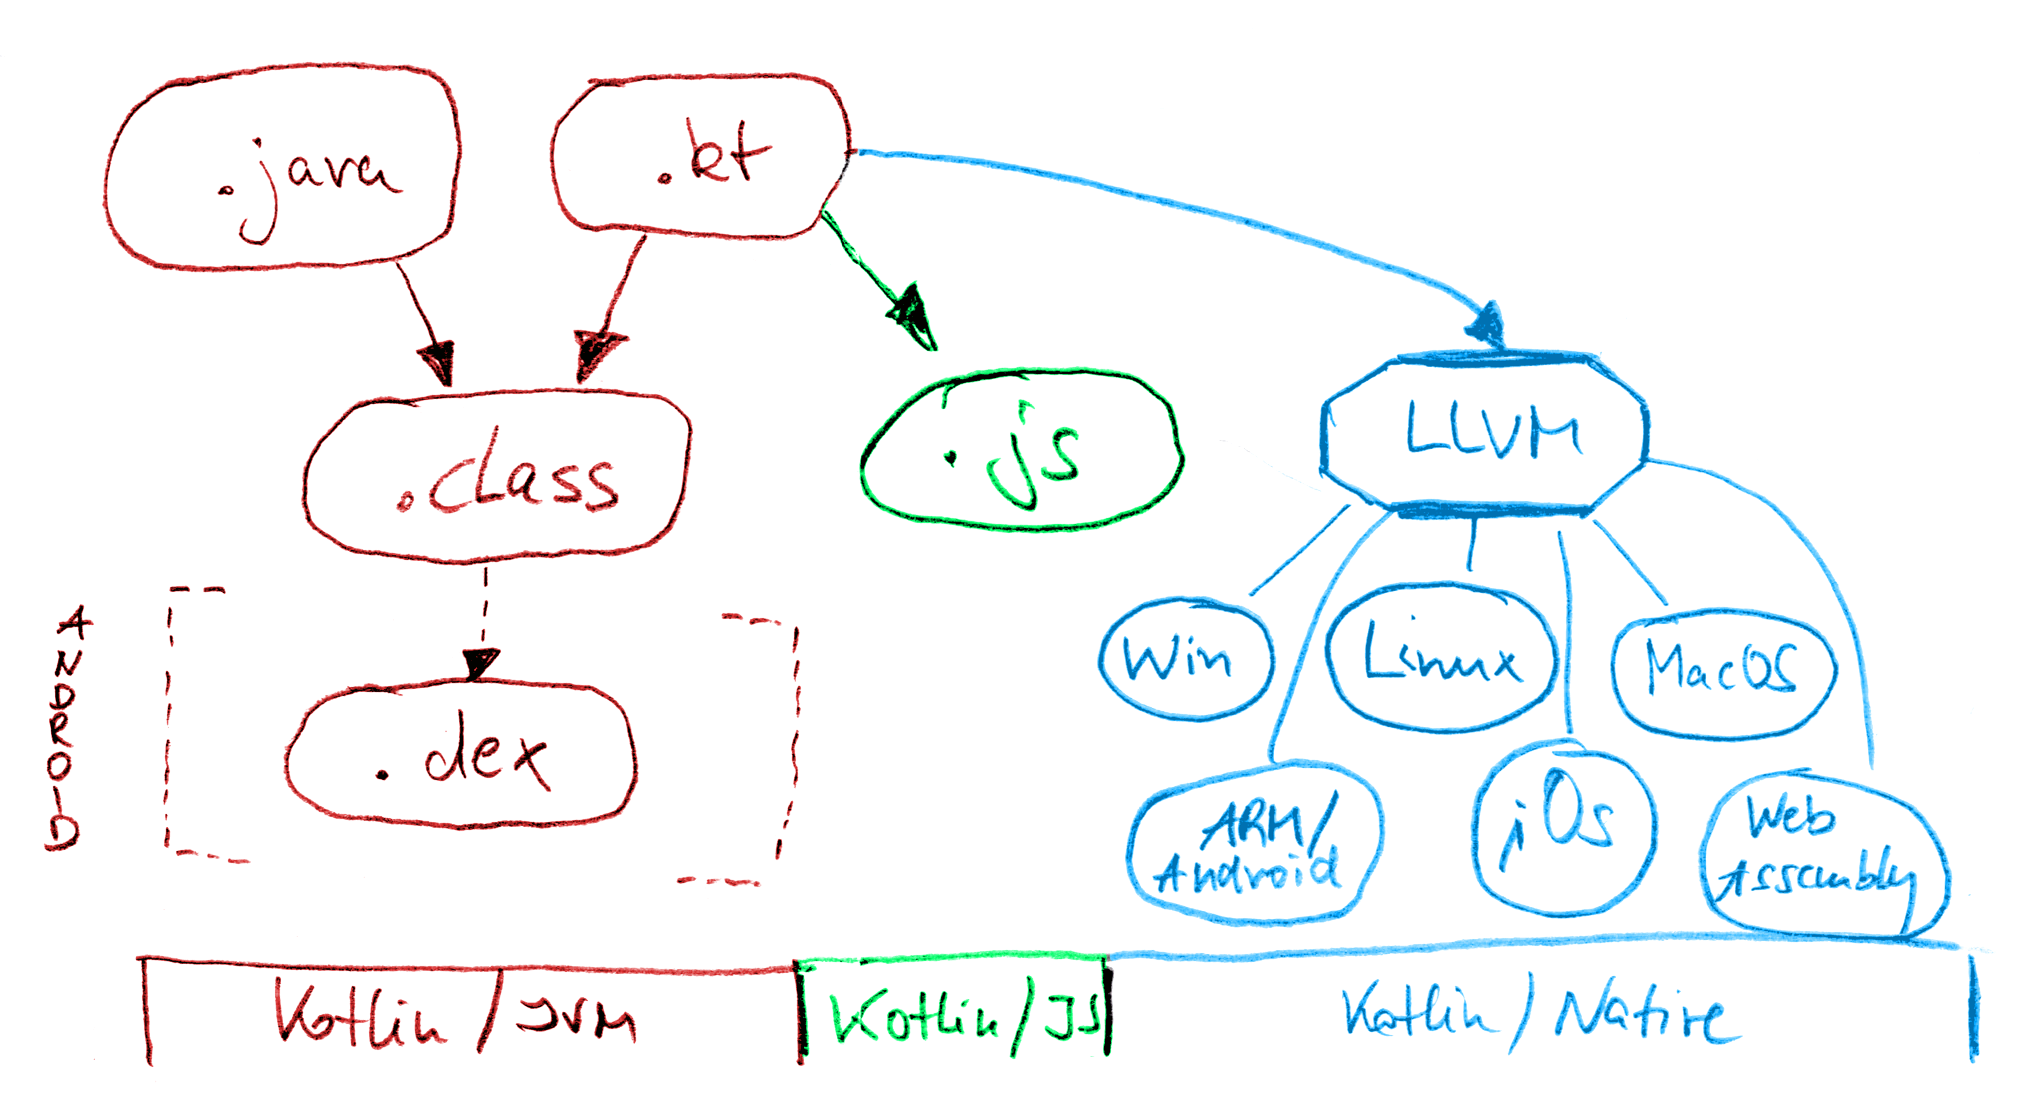 .java
.kt
.class
.js
LLVM
ANDROID
.dex
Win
Linux
MacOS
ARM/
Android
iOs
Web
Assembly
Kotlin/JVM
Kotlin/JS
Kotlin/Native